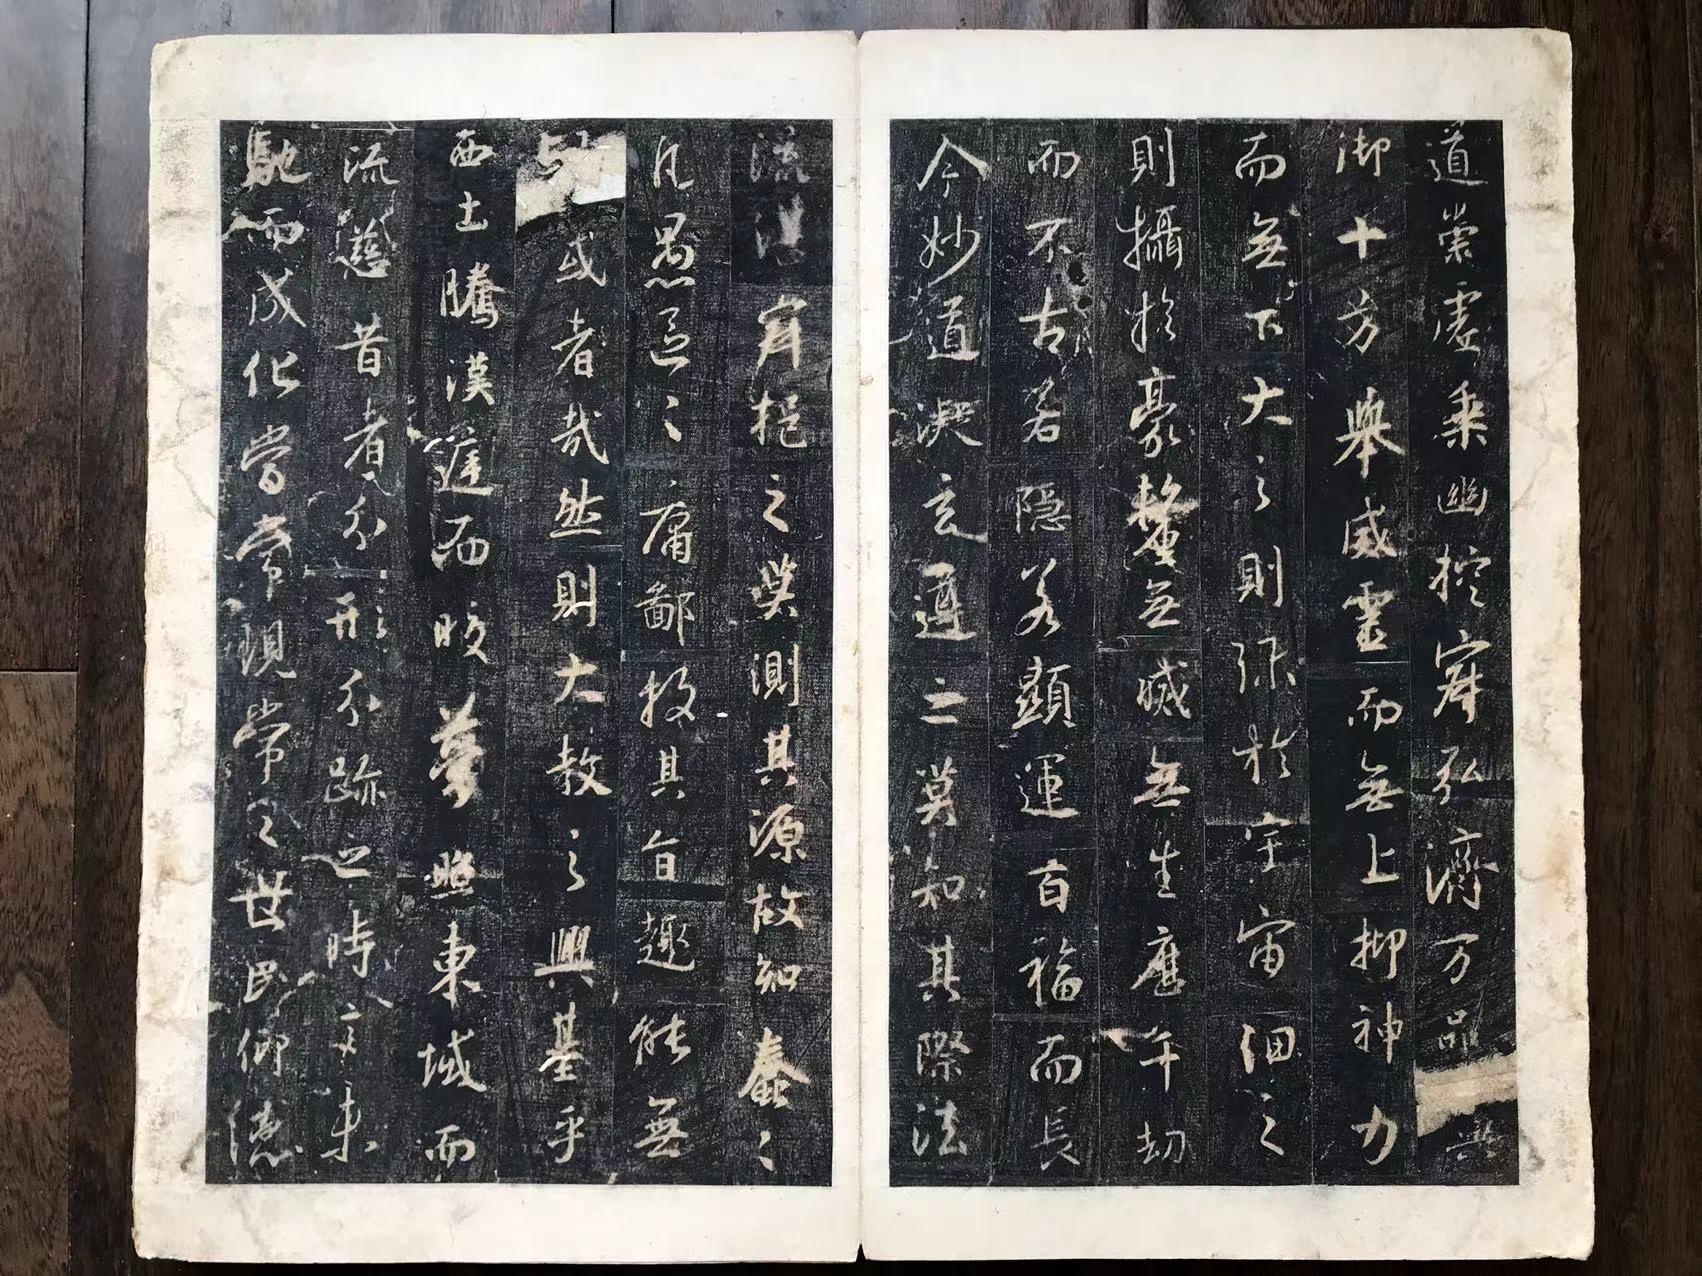 道崇虛乘幽控寂弘濟万品典
御十方舉威靈而無上抑神力
而無下大之則弥於宇宙細之
則攝於豪釐無滅無生歷千劫
而不古若隱若顯運百福而長
今妙道凝玄遵之莫知其際法
流湛寂挹之莫測其源故知蠢〻
凡愚區〻庸鄙投其旨趣能無
疑或者哉然則大教之興基乎
西土騰漢庭而皎夢照東域而
流慈昔者分形分跡之時言未
馳而成化當常現常之世民仰德